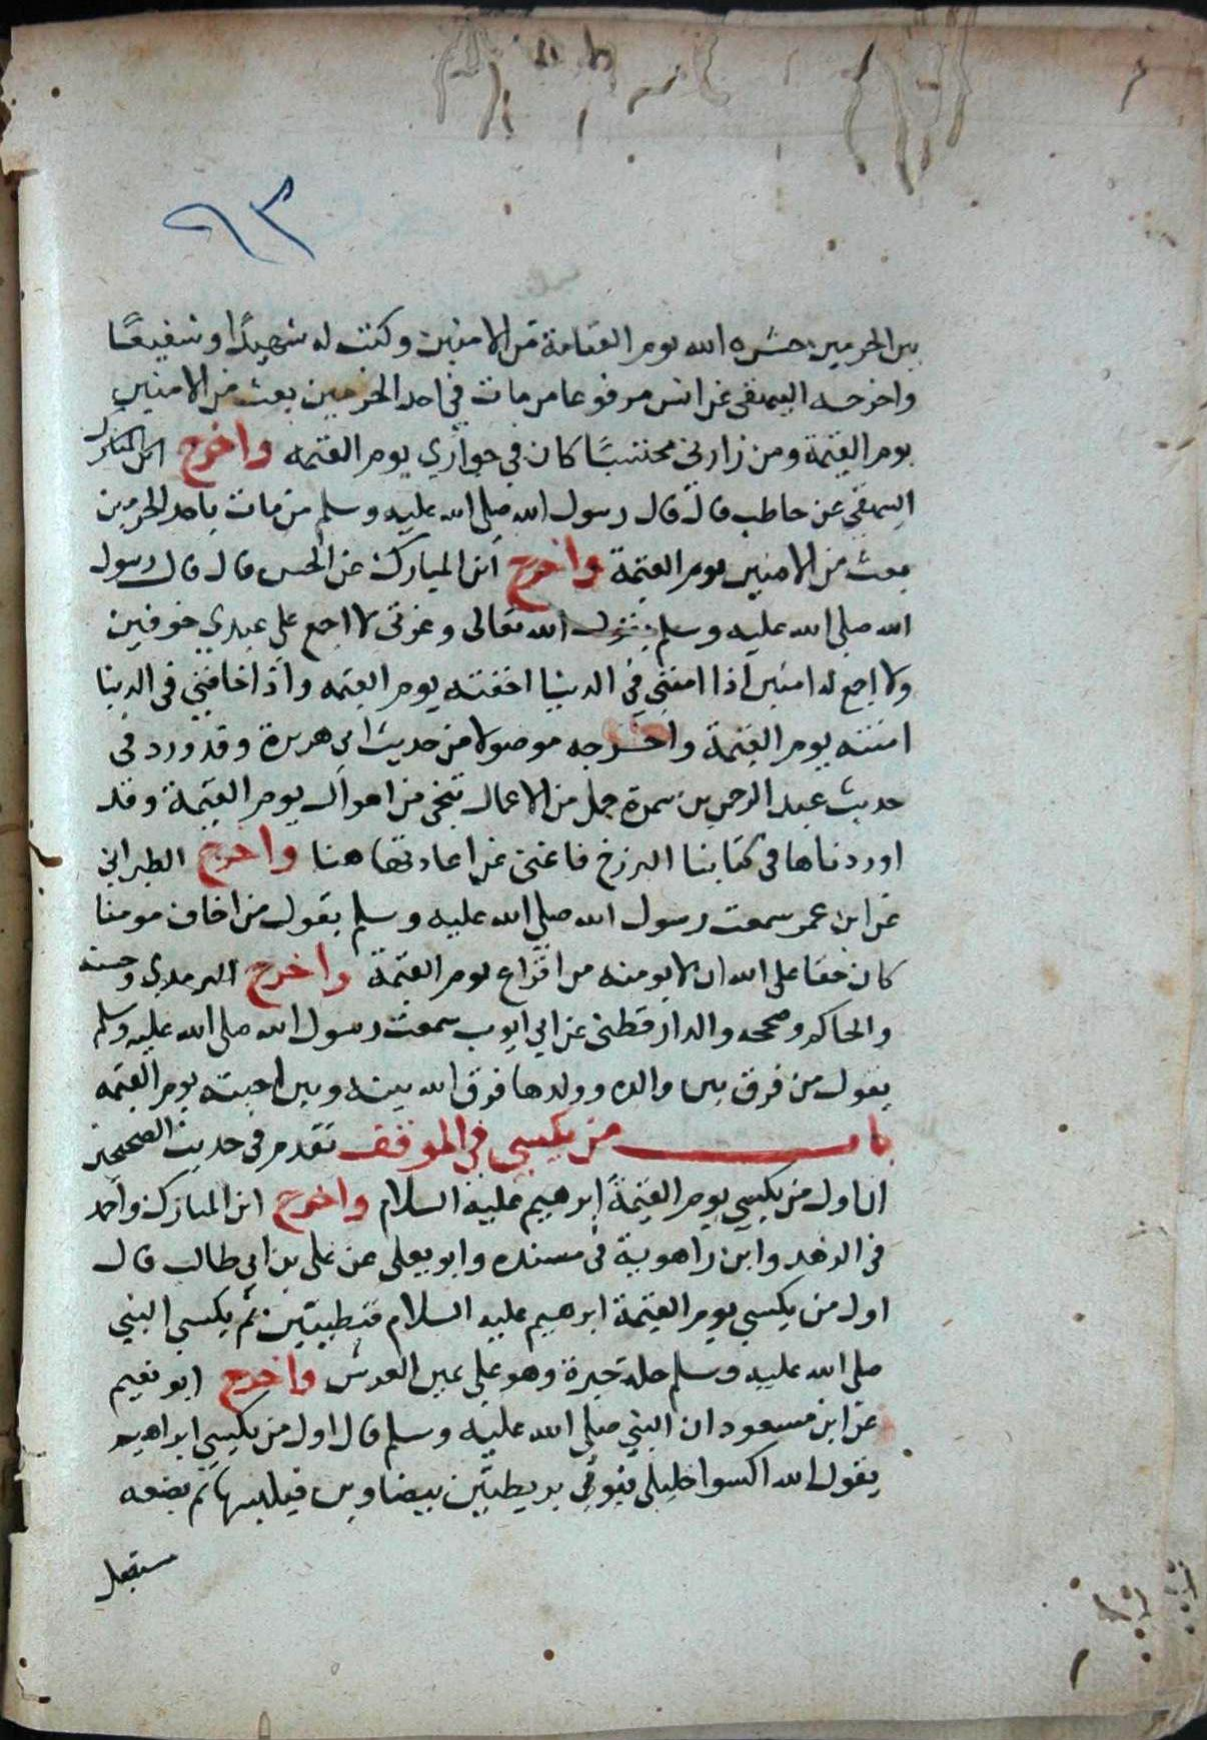 ٩٣
بين الحرمين حشره الله يوم القيامة من الامنين وكنت له شهيدًا وشفيعًا
واخرجه البيهقي عن انس مرفوعا من مات في احد الحرمين بعث من الامنين
يوم القيمة ومن زارني محتسبًا كان في جواري يوم القيمه واخرج
البيهقي عن حاطب قال قال رسول الله صلى الله عليه وسلم من مات باحد الحرمين
بعث من الامنين يوم القيمة واخرج ابن المبارك عن الحسن قال قال رسول
الله صلى الله عليه وسلم يقول الله تعالى وعزتي لا اجمع على عبدي خوفين
ولا اجمع له امنين اذا امنني في الدينا اخفته يوم القيمه واذا خافني في الدينا
امنته يوم القيمة واخرجه موصولا من حديث ابي هريرة وقد ورد في
حديث عبد الرحمن بن سمرة جمل من الاعمال تنجي من اهوال يوم القيمة وقد
اوردناها في كتابنا البرزخ فاغنى عن اعادتها هنا واخرج الطبراني
عن ابن عمر سمعت رسول الله صلى الله عليه وسلم يقول من اخاف مومنا
كان حقا على الله ان لا يومنه من افزاع يوم القيمة واخرج الترمذي وحسنه
والحاكم وصححه والدارقطني عن ابي ايوب سمعت رسول الله صلى الله عليه وسلم
يقول من فرق بين والدة وولدها فرق الله بينه وبين احبته يوم القيمه
باب من يكسي في الموقف تقدم في حديث الصحيحين
ان اول من يكسي يوم القيمة ابرهيم عليه السلام واخرج ابن المبارك واحمد
في الزهد وابن راهوية في مسنده وابو يعلى عن علي بن ابي طالب قال
اول من يكسي يوم القيمة ابرهيم عليه السلام قبطيتين ثم يكسي النبي
صلى الله عليه وسلم حلة حبرة وهو على يمين العرش واخرج ابو نعيم
عن ابن مسعود ان النبي صلى الله عليه وسلم قال اول من يكسي ابراهيم
يقول الله اكسوا خليلي فيوتي بريطتين بيضاوين فيلبسها ثم يضعه